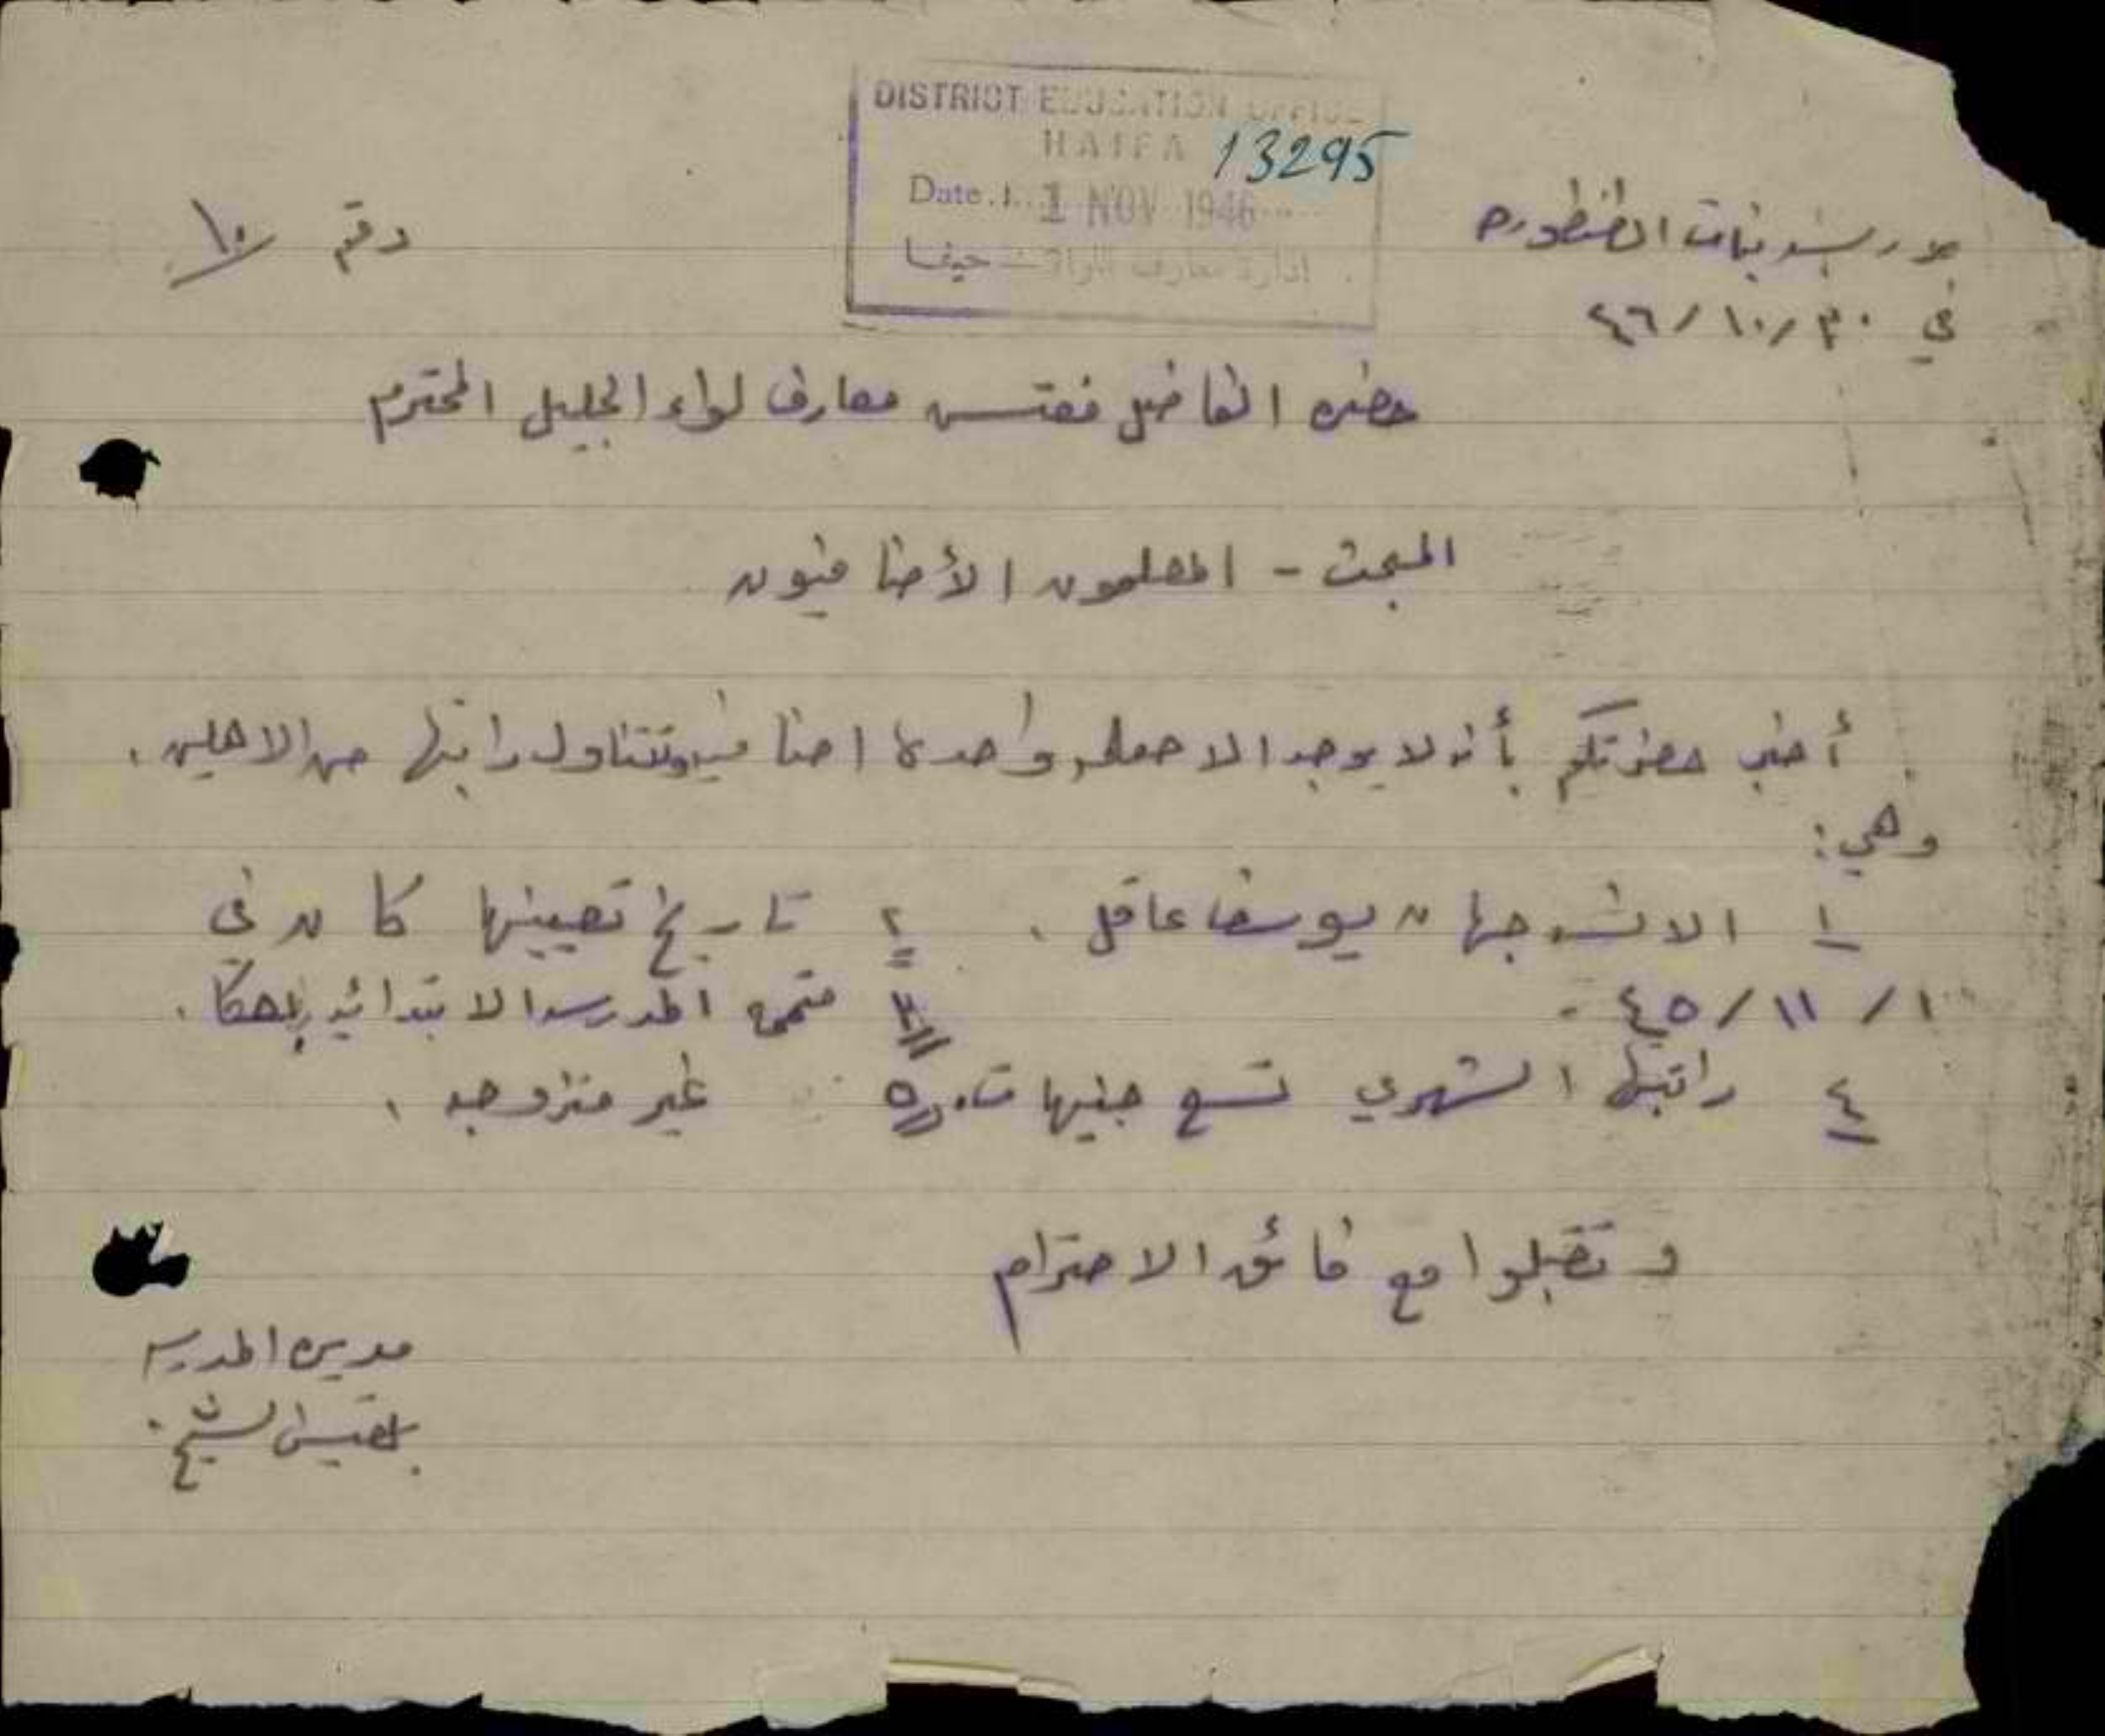 DISTRICT EDUCATION OFFICE
HAIFA 13295
Date 1 NOV 1946
ادارة معارف اللواء - حيفا
مدرسة بنات الطنطوره
في ٣٠/١٠/٤٦
رقم ١٠/
حضرة الفاضل مفتش معارف لواء الجليل المحترم
المبحث - المعلمون الأضافيون
أخبر حضرتكم بأنه لا يوجد الا معلمه واحدة اضافيه وتتناول راتبها من الاهلين.
وهي:
١ الانسه جهان يوسف عاقل. ٢ تاريخ تعيينها كان في
١/١١/٤٥. ٣ متممه المدرسه الابتدائيه بعكا.
٤ راتبها الشهري تسع جنيهات. ٥ غير متزوجه.
وتقبلوا مع فائق الاحترام
مديرة المدرسه
بلقيس الشيخ.